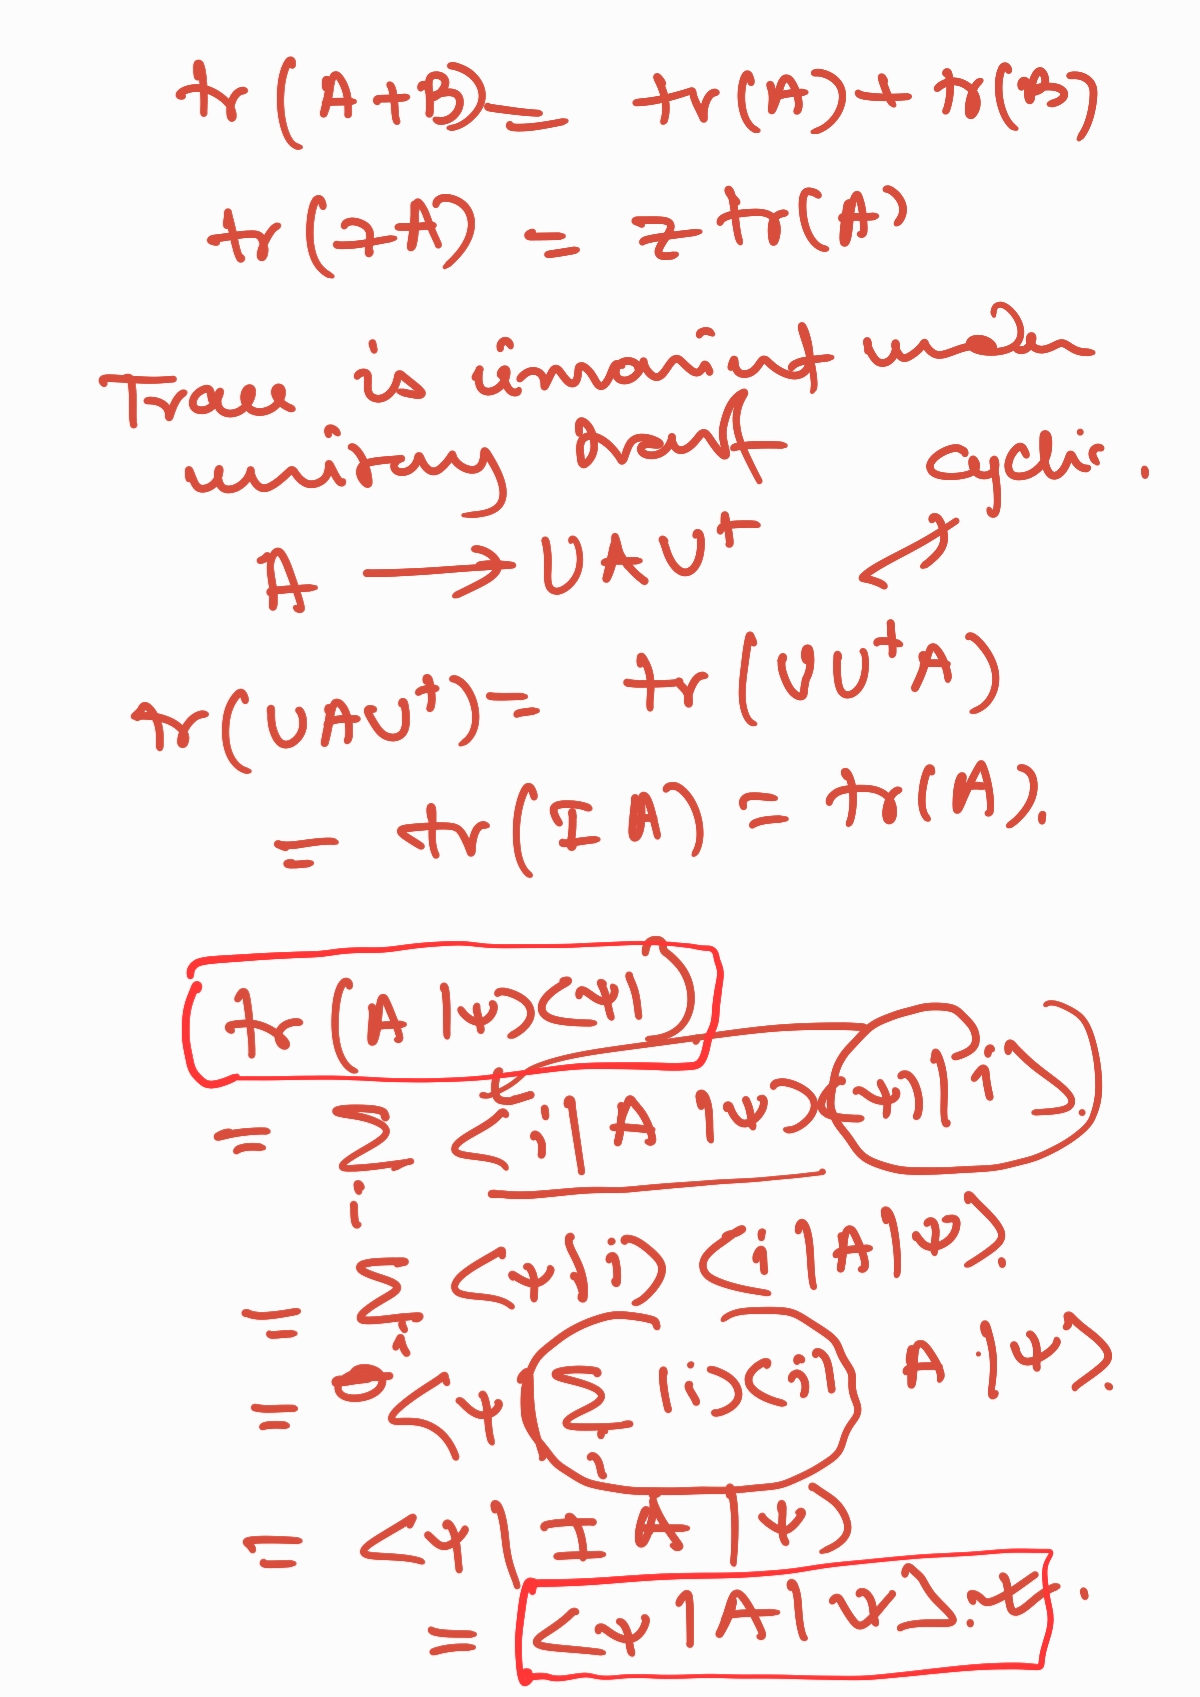 tr(A+B) = tr(A) + tr(B)
tr(zA) = z tr(A)
Trace is invariant under
unitary transf cyclic.
A → UAU†
tr(UAU†) = tr(UU†A)
= tr(IA) = tr(A).
tr(A|ψ⟩⟨ψ|)
= Σ_i ⟨i|A|ψ⟩⟨ψ|i⟩.
= Σ_i ⟨ψ|i⟩⟨i|A|ψ⟩.
= ⟨ψ|Σ_i |i⟩⟨i| A|ψ⟩.
= ⟨ψ|IA|ψ⟩
= ⟨ψ|A|ψ⟩.